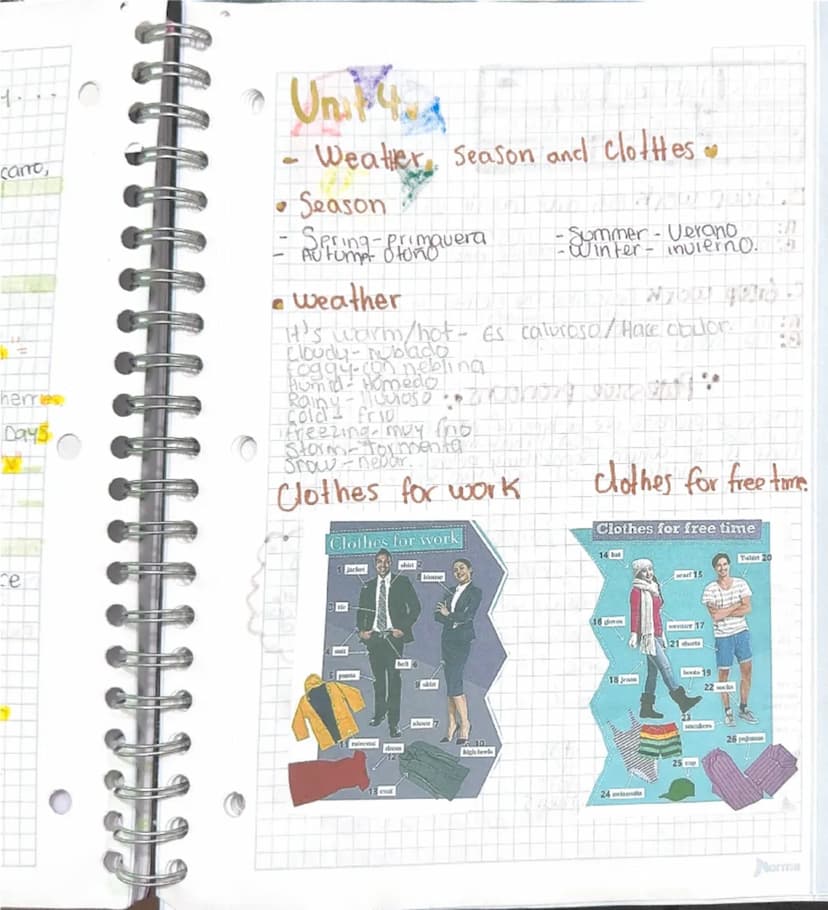 carro,
herries
Days
Unit 4.
- Weather, season and clothes
• Season
- Spring - primavera
- Summer - Verano
- Autump - Otoño
- Winter - invierno.
• weather
It's warm/hot - Es caluroso / Hace calor.
Cloudy - nublado
Foggy - con neblina
Humid - Húmedo
Rainy - lluvioso
Cold - Frio
Freezing - muy frio
Storm - Tormenta
Snow - nevar.
Clothes for work
Clothes for free time.
Clothes for work
1 jacket
shirt 2
8 blouse
3 tie
4 suit
belt 6
5 pants
9 skirt
shoes 7
10 high heels
11 raincoat
dress 12
13 coat
Clothes for free time
14 hat
T-shirt 20
scarf 15
16 gloves
sweater 17
21 shorts
18 jeans
boots 19
22 socks
23 sneakers
26 pajamas
25 cap
24 swimsuits
Norma